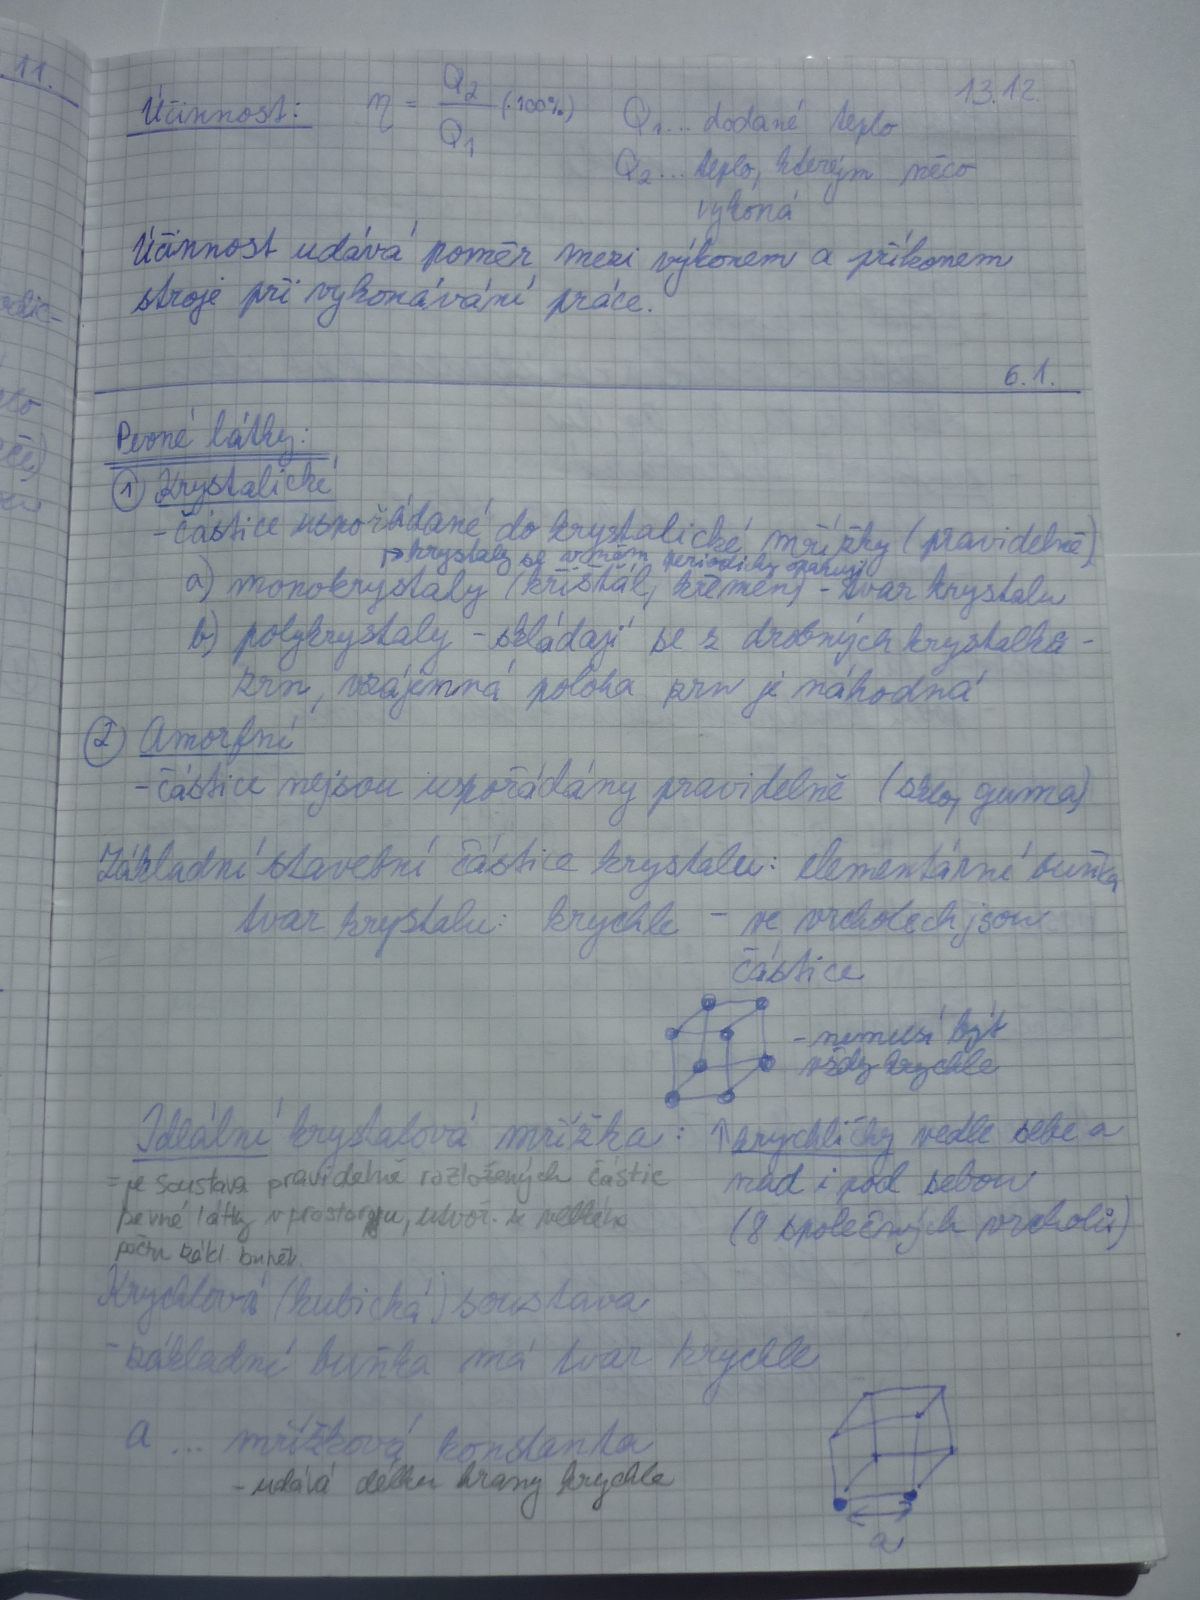 .11.
13.12.
Účinnost: η = Q2/Q1 (·100%) Q1... dodané teplo
Q2... teplo, kterým něco
vykoná
Účinnost udává poměr mezi výkonem a příkonem
stroje při vykonávání práce.
6.1.
Pevné látky:
1 Krystalické
- částice uspořádané do krystalické mřížky (pravidelně)
→ krystaly se v něm periodicky opakují
a) monokrystaly (křišťál, křemen) - tvar krystalu
b) polykrystaly - skládají se z drobných krystalků -
zrn, vzájemná poloha zrn je náhodná
2 Amorfní
- částice nejsou uspořádány pravidelně (sklo, guma)
Základní stavební částice krystalu: elementární buňka
tvar krystalu: krychle - ve vrcholech jsou
částice
- nemusí být
vždy krychle
Ideální krystalová mřížka: ↑ krychličky vedle sebe a
nad i pod sebou
(8 společných vrcholů)
= je soustava pravidelně rozložených částic
pevné látky v prostoru, utvoř. z velkého
počtu zákl. buněk
Krychlová (kubická) soustava
- základní buňka má tvar krychle
a ... mřížková konstanta
- udává délku hrany krychle
a